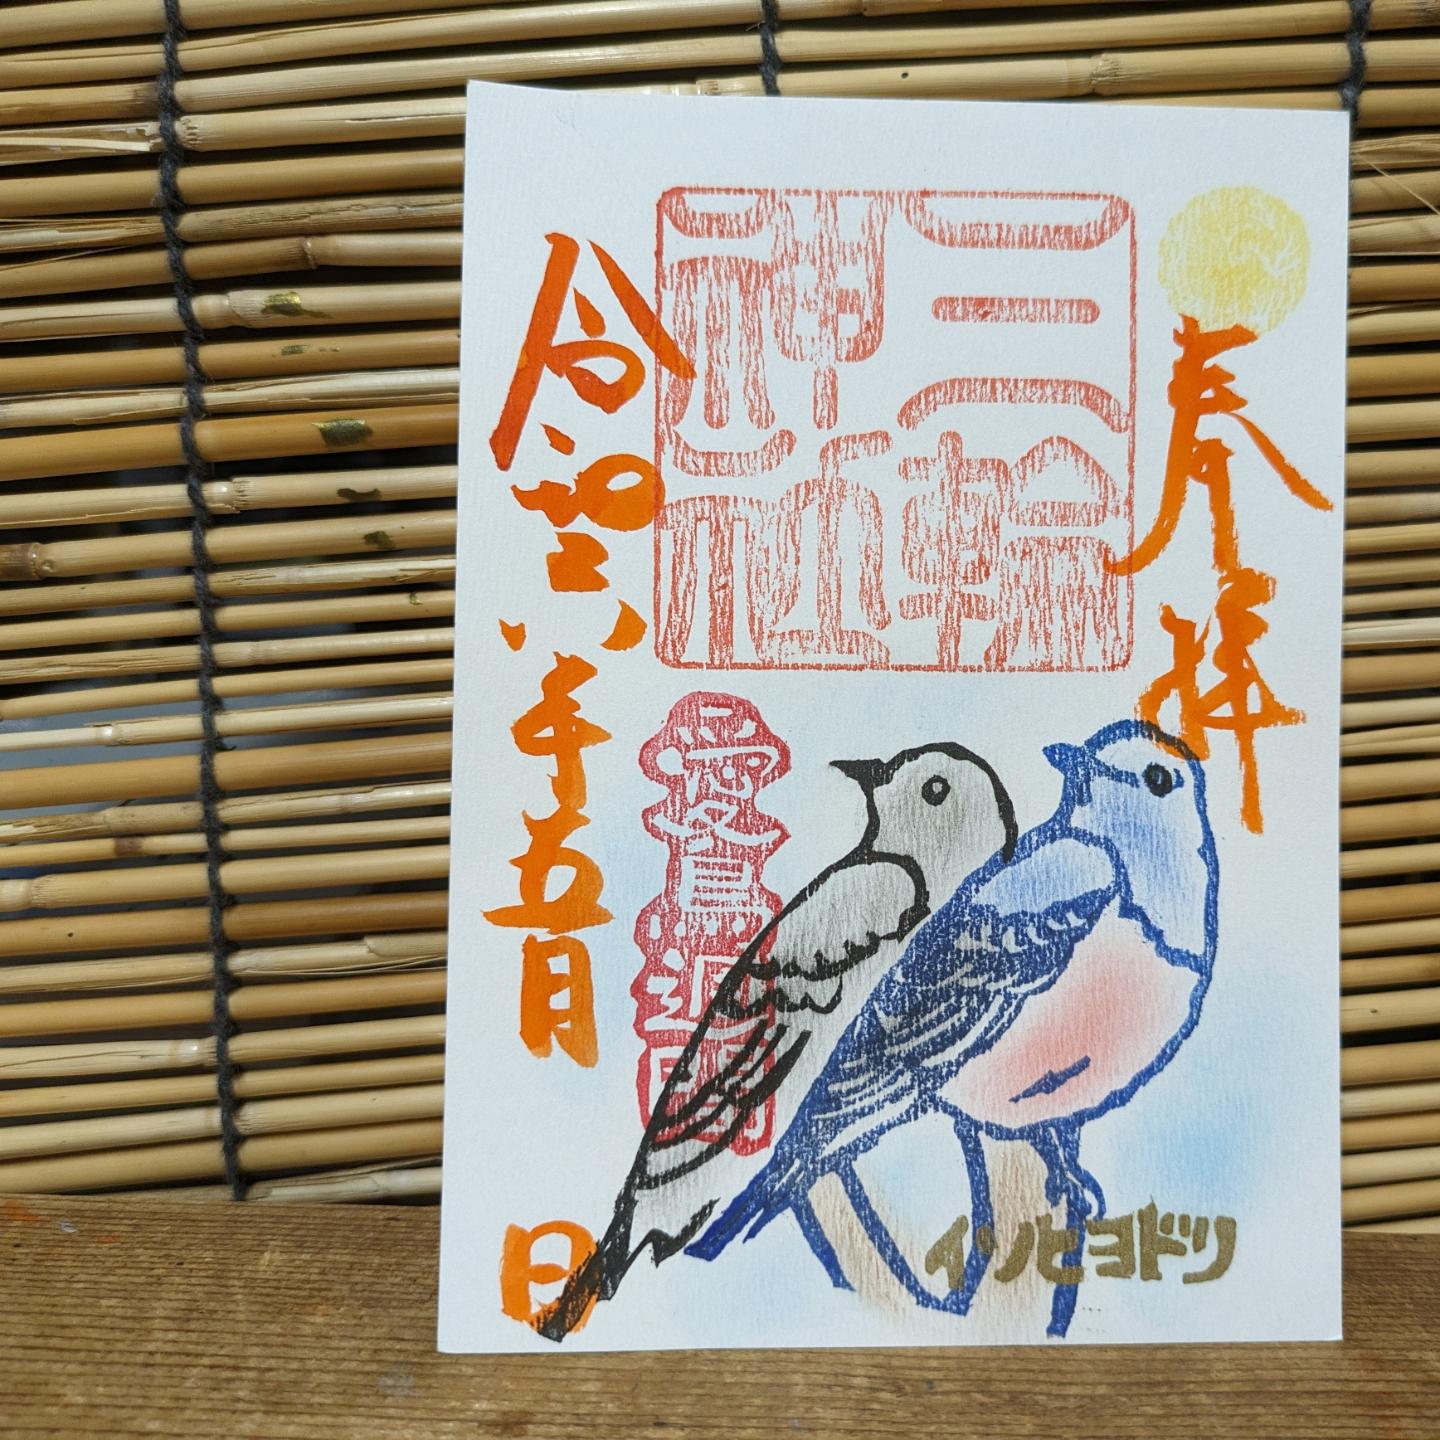 奉拝
三輪
神社
愛鳥週間
令和六年五月 日
イソヒヨドリ